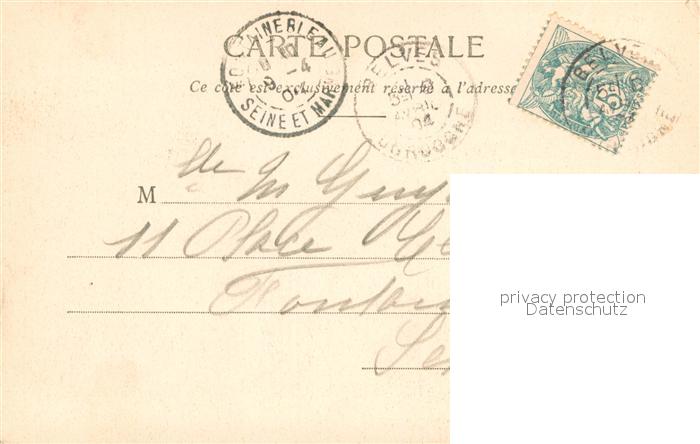 CARTE POSTALE
Ce côté est exclusivement réservé à l'adresse
FONTAINEBLEAU
SEINE ET MARNE
BELVES
DORDOGNE
04
M lle M Guy
11 Place
Fontain
Se
privacy protection
Datenschutz